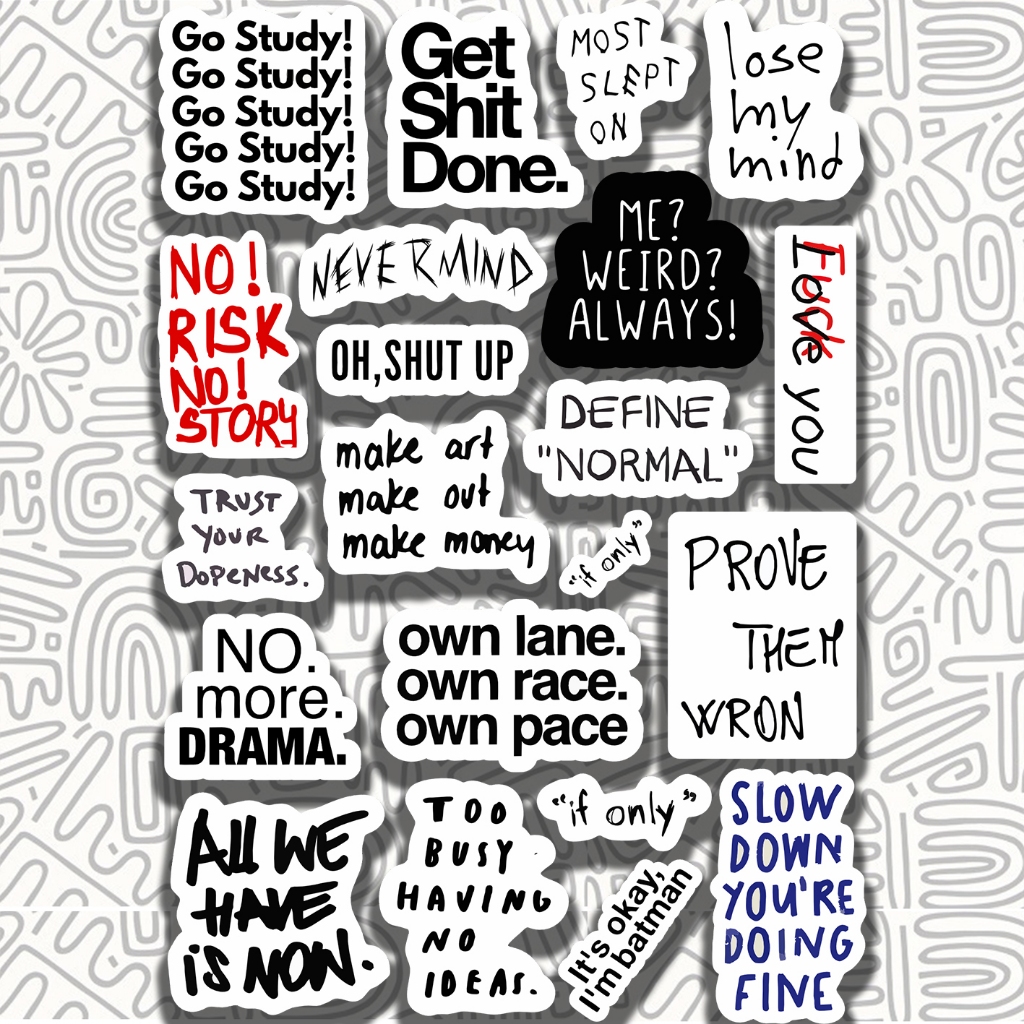 Go Study!
Go Study!
Go Study!
Go Study!
Go Study!
Get
Shit
Done.
MOST
SLEPT
ON
lose
my
mind
NO!
RISK
NO!
STORY
NEVERMIND
ME?
WEIRD?
ALWAYS!
Fuck
Love you
OH,SHUT UP
DEFINE
"NORMAL"
make art
make out
make money
TRUST
YOUR
DOPENESS.
"if only"
PROVE
THEM
WRON
NO.
more.
DRAMA.
own lane.
own race.
own pace
ALL WE
HAVE
iS NOW.
TOO
BUSY
HAVING
NO
IDEAS.
"if only"
It's okay,
I'm batman
SLOW
DOWN
YOU'RE
DOING
FINE